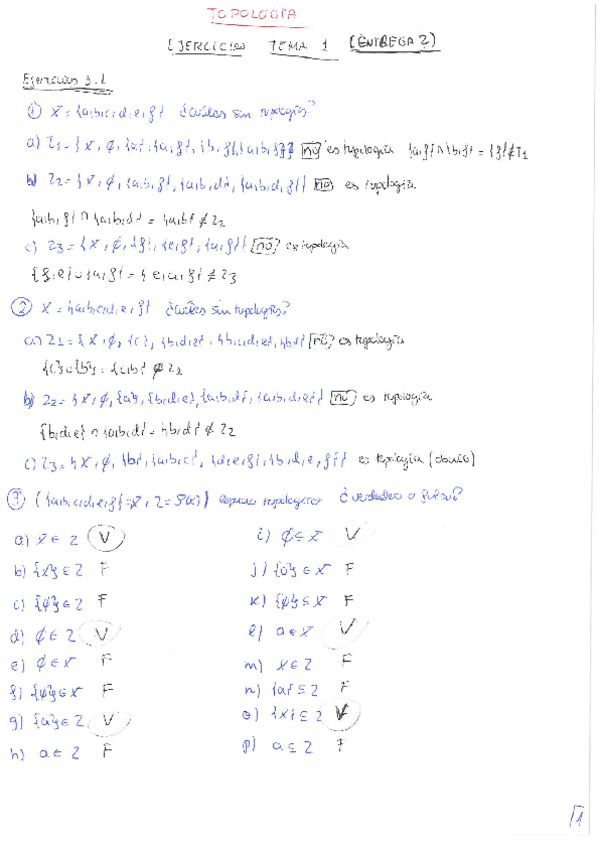 TOPOLOGÍA
EJERCICIOS TEMA 1 (ENTREGA 2)
Ejercicios 1.1
① X = {a,b,c,d,e,f} ¿Cuáles son topologías?
a) τ1 = {X, ∅, {a}, {a,f}, {b,f}, {a,b,f}} no es topología {a,f} ∩ {b,f} = {f} ∉ τ1
b) τ2 = {X, ∅, {a,b,f}, {a,b,d}, {a,b,d,f}} no es topología
{a,b,f} ∩ {a,b,d} = {a,b} ∉ τ2
c) τ3 = {X, ∅, {f}, {e,f}, {a,f}} no es topología
{f,e} ∪ {a,f} = {e,a,f} ∉ τ3
② X = {a,b,c,d,e,f} ¿Cuáles son topologías?
a) τ1 = {X, ∅, {c}, {b,d,e}, {b,c,d,e}, {b}} no es topología
{c} ∪ {b} = {c,b} ∉ τ1
b) τ2 = {X, ∅, {a}, {b,d,e}, {a,b,d}, {a,b,d,e}} no es topología
{b,d,e} ∩ {a,b,d} = {b,d} ∉ τ2
c) τ3 = {X, ∅, {b}, {a,b,c}, {d,e,f}, {b,d,e,f}} es topología (obvio)
③ ({a,b,c,d,e,f} = X, τ = P(X)) espacio topológico ¿verdadero o falso?
a) X ∈ τ V
b) {X} ∈ τ F
c) {∅} ∈ τ F
d) ∅ ∈ τ V
e) ∅ ∈ X F
f) {∅} ∈ X F
g) {a} ∈ τ V
h) a ∈ τ F
i) ∅ ⊆ X V
j) {∅} ∈ X F
k) {∅} ⊆ X F
l) a ∈ X V
m) X ∈ τ F
n) {a} ⊆ τ F
o) {X} ⊆ τ V
p) a ⊆ τ F
1